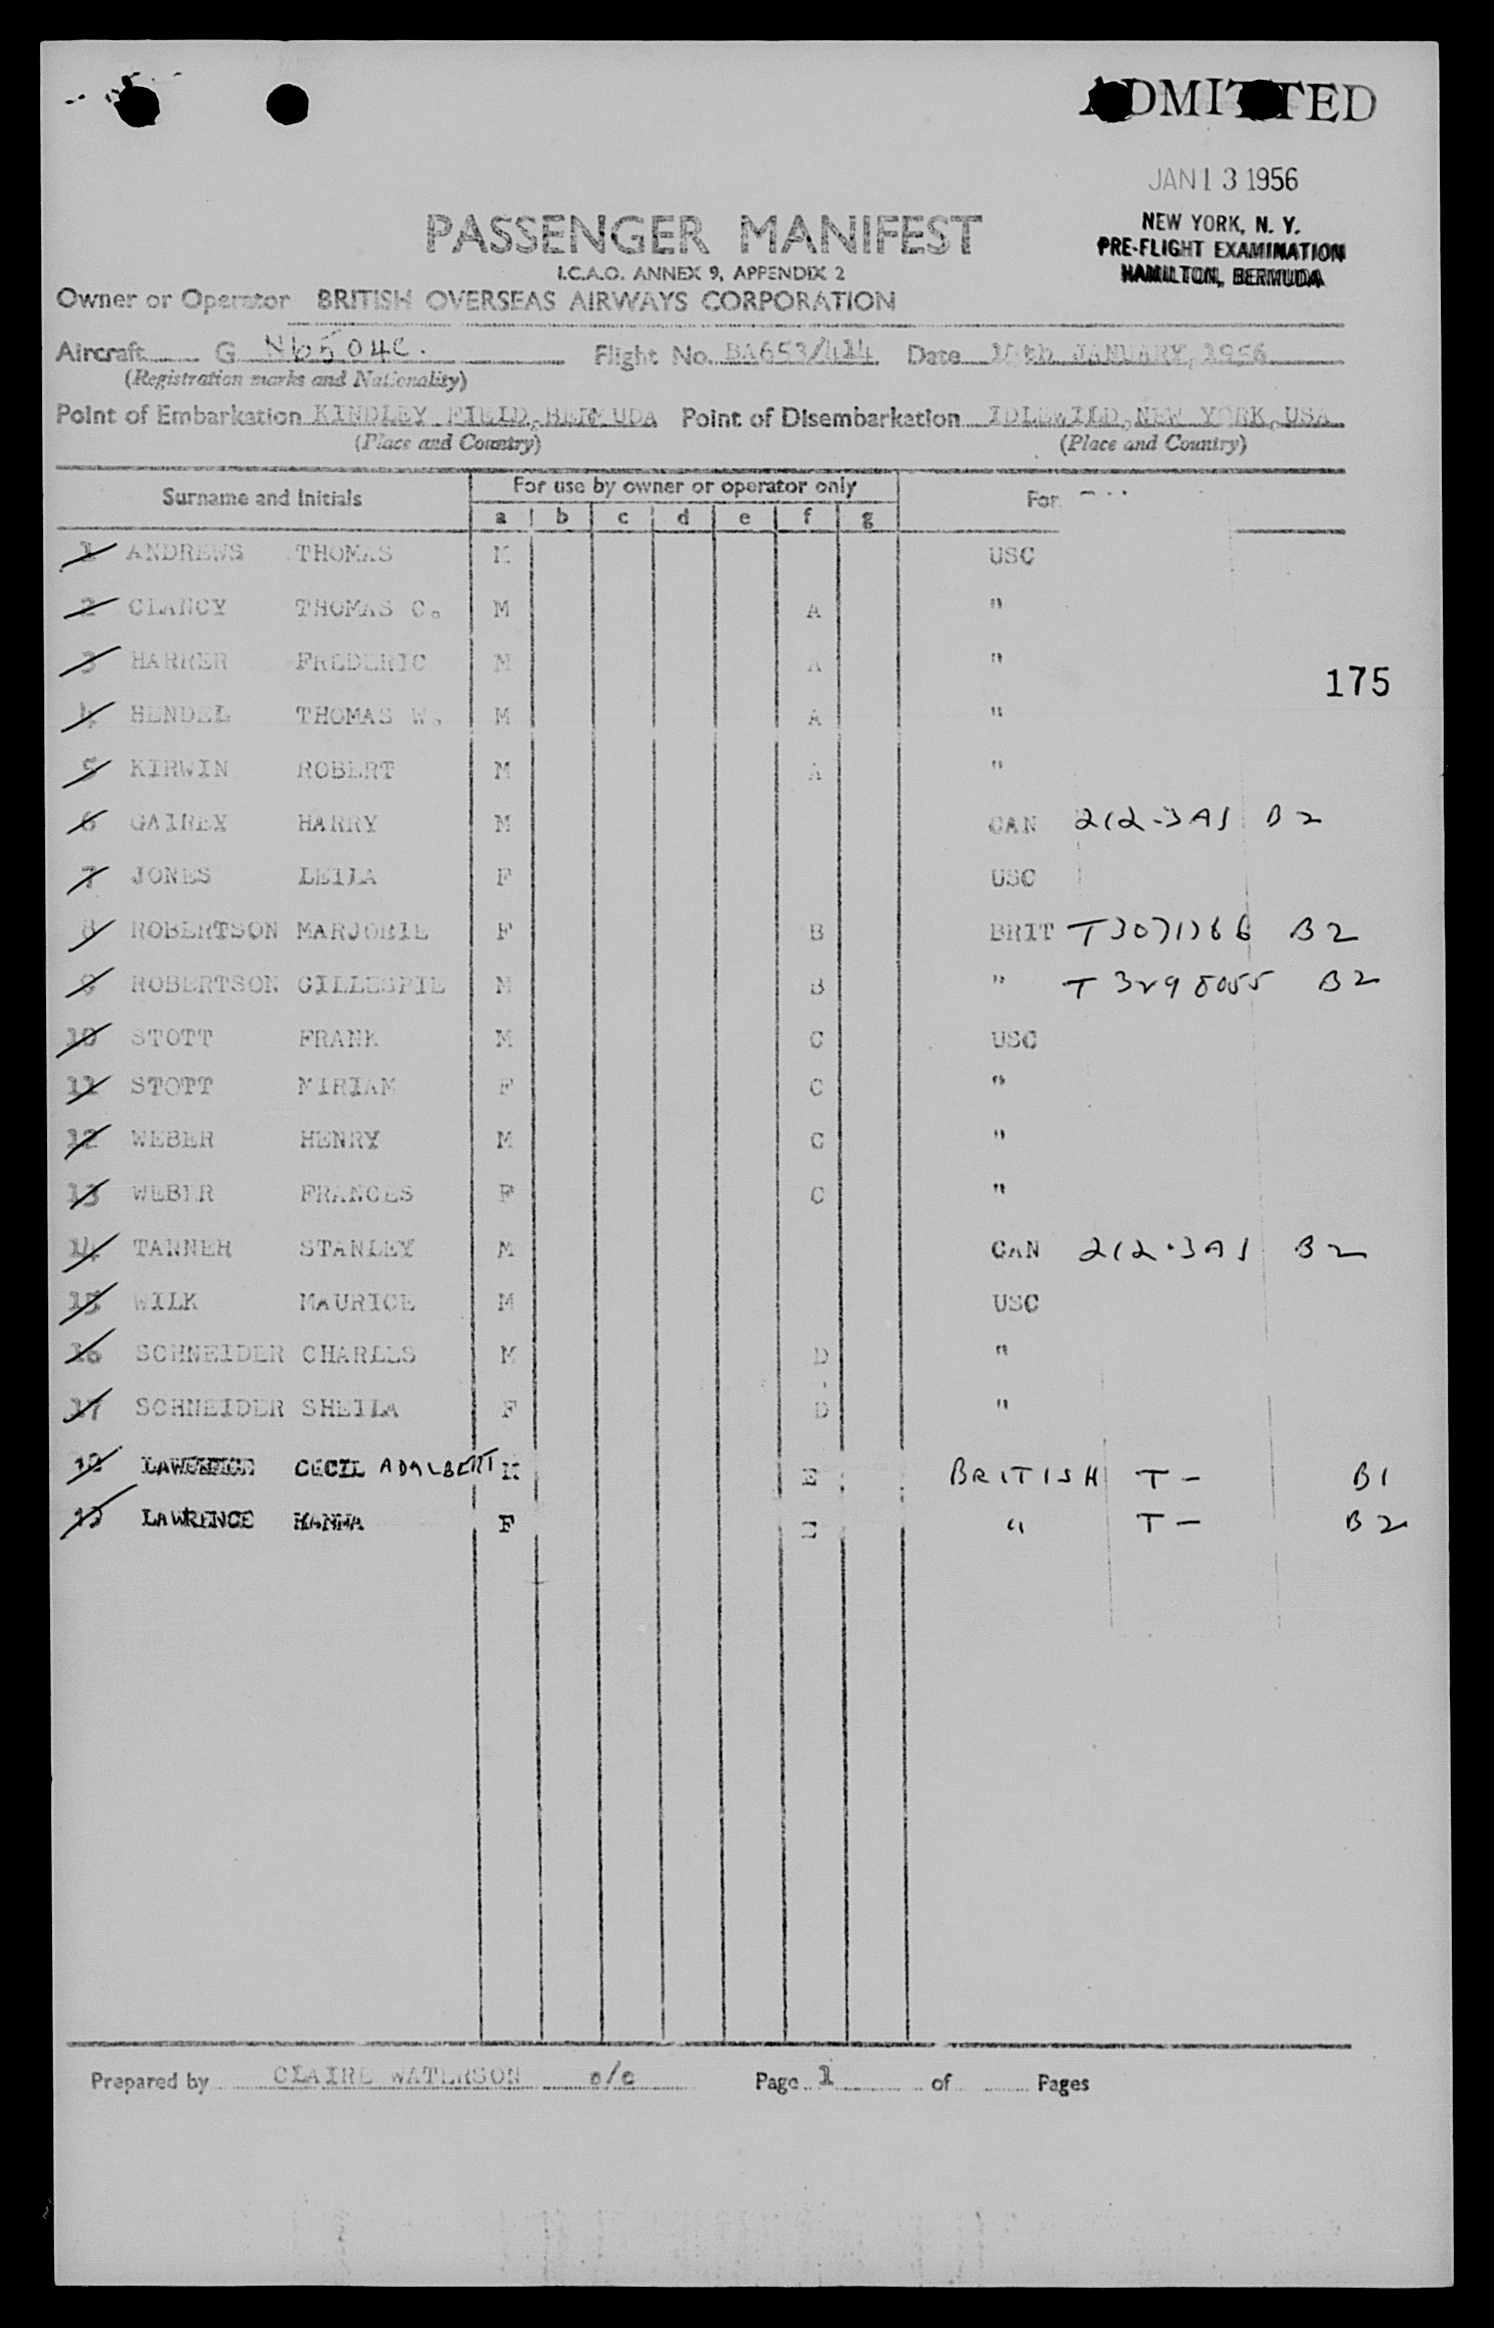 ADMITTED
JAN 13 1956
NEW YORK, N. Y.
PRE-FLIGHT EXAMINATION
HAMILTON, BERMUDA
PASSENGER MANIFEST
I.C.A.O. ANNEX 9, APPENDIX 2
Owner or Operator BRITISH OVERSEAS AIRWAYS CORPORATION
Aircraft G N6504C. Flight No. BA653/414 Date JANUARY, 1956
(Registration marks and Nationality)
Point of Embarkation KINDLEY FIELD, BERMUDA Point of Disembarkation IDLEWILD, NEW YORK, USA
(Place and Country) (Place and Country)
Surname and Initials For use by owner or operator only For
a b c d e f g
1 ANDREWS THOMAS M USC
2 CLANCY THOMAS C. M A "
175
3 HARRER FREDERIC M A "
4 HENDEL THOMAS W. M A "
5 KIRWIN ROBERT M A "
6 GAIREY HARRY M CAN 212.3A1 B2
7 JONES LEILA F USC
8 ROBERTSON MARJORIE F B BRIT B2
9 ROBERTSON GILLESPIE M B " B2
10 STOTT FRANK M C USC
11 STOTT MIRIAM F C "
12 WEBER HENRY M C "
13 WEBER FRANCES F C "
14 TANNER STANLEY M CAN 212.3A1 B2
15 WILK MAURICE M USC
16 SCHNEIDER CHARLES M D "
17 SCHNEIDER SHEILA F D "
18 LAWRENCE CECIL ADALBERT M E BRITISH T- B1
19 LAWRENCE HANNA F E " T- B2
Prepared by CLAIRE WATERSON Page 1 of Pages